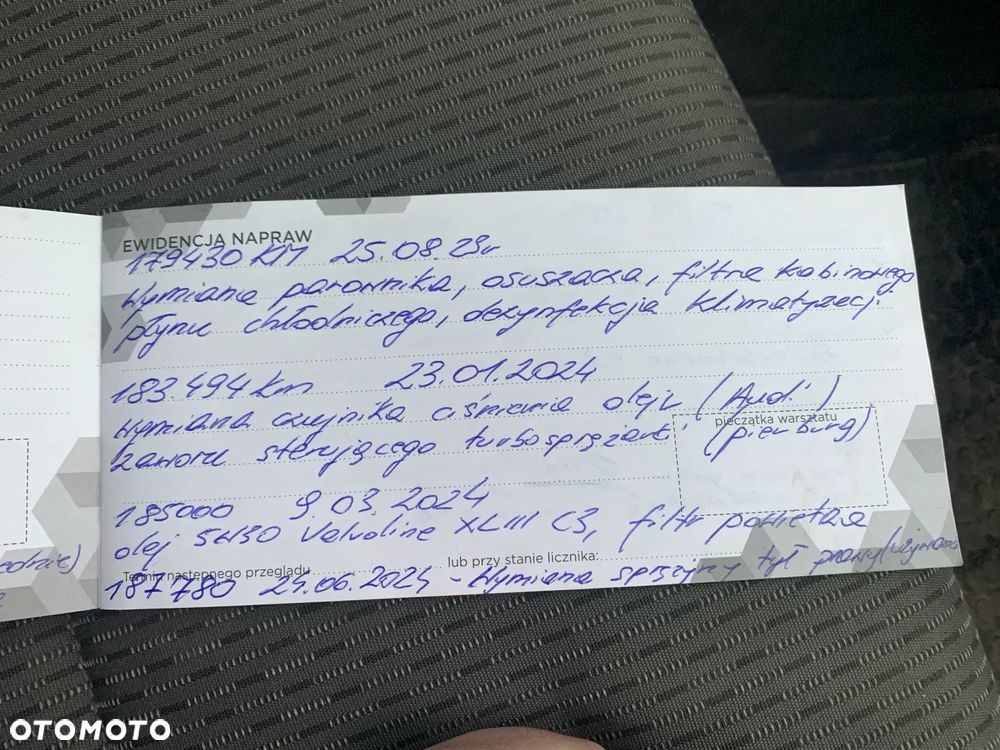 EWIDENCJA NAPRAW
179430 KM 25.08.23r
Wymiana parownika, osuszacza, filtra kabinowego
płynu chłodniczego, dezynfekcja klimatyzacji
183.494 km 23.01.2024
Wymiana czujnika ciśnienia oleju (Audi)
pieczątka warsztatu
zaworu sterującego turbosprężarki (pierburg)
185000 9.03.2024
olej 5W30 Valvoline XL III C3, filtr powietrza
lub przy stanie licznika:
Termin następnego przeglądu
187780 24.06.2024 - Wymiana sprężyny tył prawy/używana
OTOMOTO